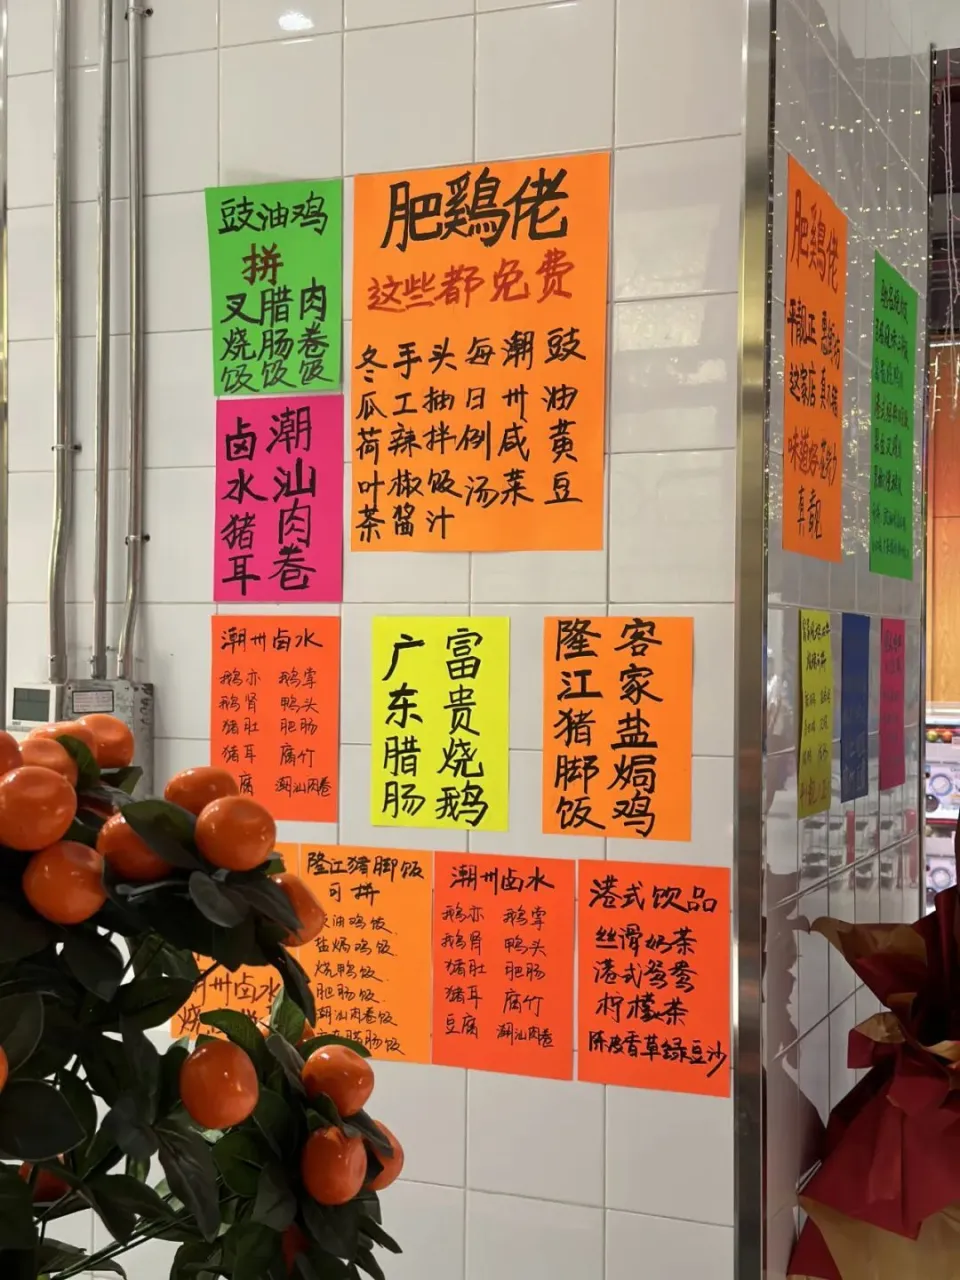 豉油鸡
拼
叉烧饭
腊肠饭
肉卷饭
肥鷄佬
这些都免费
豉油黄豆
潮州咸菜
每日例汤
头抽拌饭汁
手工辣椒醬
冬瓜荷叶茶
潮汕肉卷
卤水猪耳
潮州卤水
鹅亦 鹅掌
鹅肾 鸭头
猪肚 肥肠
猪耳 腐竹
腐 潮汕肉卷
富贵烧鹅
广东腊肠
客家盐焗鸡
隆江猪脚饭
隆江猪脚饭
可拼
油鸡饭
盐焗鸡饭
烧鸭饭
肥肠饭
潮汕肉卷饭
腊肠饭
州卤水
烧
潮州卤水
鹅亦 鹅掌
鹅肾 鸭头
猪肚 肥肠
猪耳 腐竹
豆腐 潮汕肉卷
港式饮品
丝滑奶茶
港式鸳鸯
柠檬茶
陈皮香草绿豆沙
肥鷄佬
平靓正 惠街坊
这家店 真不错
味道好
真